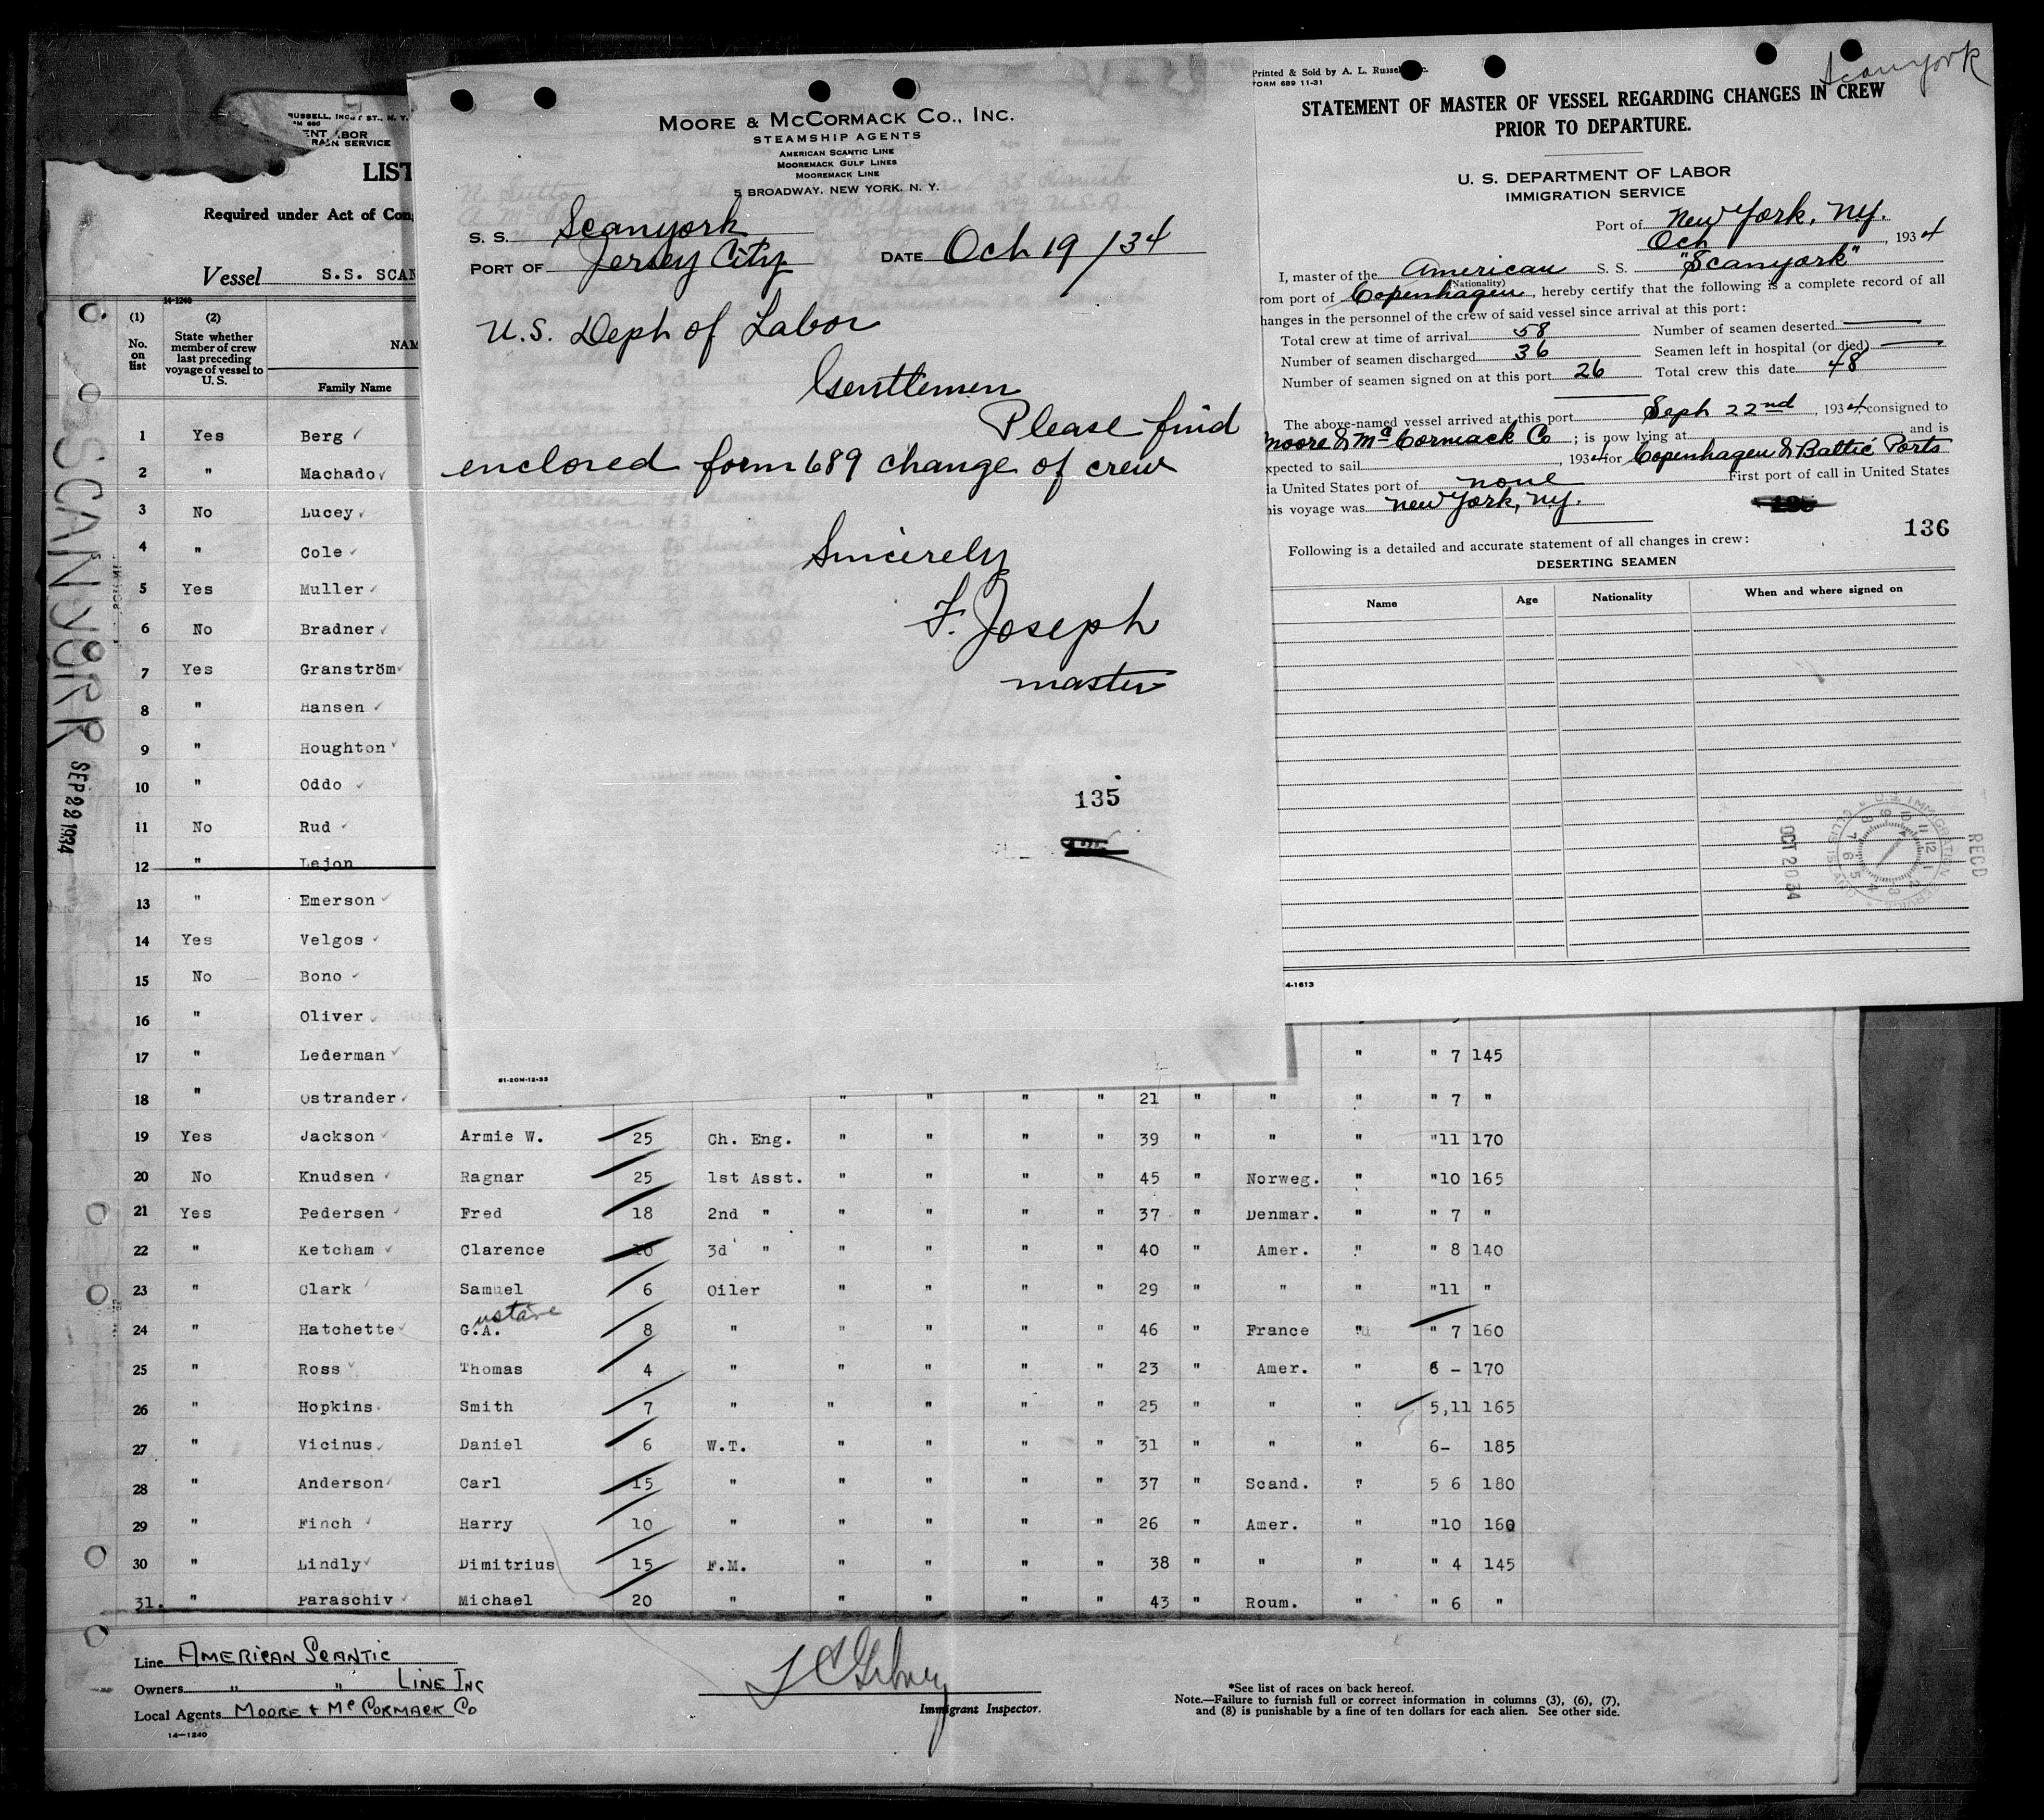 RUSSELL, INC.
LIST
Required under Act of Con
Vessel S.S. SCAN
14-1240
(1) No. on list
(2) State whether member of crew last preceding voyage of vessel to U. S.
NAM
Family Name
1 Yes Berg
2 " Machado
3 No Lucey
4 " Cole
5 Yes Muller
6 No Bradner
7 Yes Granström
8 " Hansen
9 " Houghton
10 " Oddo
11 No Rud
12 " Lejon
13 " Emerson
14 Yes Velgos
15 No Bono
16 " Oliver
17 " Lederman " " 7 145
18 " Ostrander " " " " 21 " " " " 7 "
19 Yes Jackson Armie W. 25 Ch. Eng. " " " " 39 " " " "11 170
20 No Knudsen Ragnar 25 1st Asst. " " " " 45 " Norweg. " "10 165
21 Yes Pedersen Fred 18 2nd " " " " " 37 " Denmar. " " 7 "
22 " Ketcham Clarence 10 3d " " " " " 40 " Amer. " " 8 140
23 " Clark Samuel 6 Oiler " " " " 29 " " " "11 "
ustave
24 " Hatchette G.A. 8 " " " " " 46 " France " " 7 160
25 " Ross Thomas 4 " " " " " 23 " Amer. " 6 - 170
26 " Hopkins Smith 7 " " " " " 25 " " " 5,11 165
27 " Vicinus Daniel 6 W.T. " " " " 31 " " " 6- 185
28 " Anderson Carl 15 " " " " " 37 " Scand. " 5 6 180
29 " Finch Harry 10 " " " " " 26 " Amer. " "10 160
30 " Lindly Dimitrius 15 F.M. " " " " 38 " " " " 4 145
31. " Paraschiv Michael 20 " " " " " 43 " Roum. " " 6 "
Line AMERICAN SCANTIC
Owners " " LINE INC
Local Agents MOORE & MCCORMACK CO
14-1240
Immigrant Inspector.
*See list of races on back hereof.
Note.—Failure to furnish full or correct information in columns (3), (6), (7),
and (8) is punishable by a fine of ten dollars for each alien. See other side.
SEP 22 1934
MOORE & MCCORMACK CO., INC.
STEAMSHIP AGENTS
AMERICAN SCANTIC LINE
MOOREMACK GULF LINES
MOOREMACK LINE
5 BROADWAY, NEW YORK, N. Y.
S. S. Scanyork
PORT OF Jersey City DATE Oct 19/34
U.S. Dept of Labor
Gentlemen
Please find
enclosed form 689 change of crew
Sincerely
F. Joseph
master
135
51-20M-12-33
Scanyork
Printed & Sold by A. L. Russel
FORM 689 11-31
STATEMENT OF MASTER OF VESSEL REGARDING CHANGES IN CREW
PRIOR TO DEPARTURE.
U. S. DEPARTMENT OF LABOR
IMMIGRATION SERVICE
Port of New York, N.Y.
Oct, 1934
I, master of the American S. S. "Scanyork"
(Nationality)
rom port of Copenhagen, hereby certify that the following is a complete record of all
hanges in the personnel of the crew of said vessel since arrival at this port:
Total crew at time of arrival 58 Number of seamen deserted —
Number of seamen discharged 36 Seamen left in hospital (or died) —
Number of seamen signed on at this port 26 Total crew this date 48
The above-named vessel arrived at this port Sept 22nd, 1934 consigned to
Moore & McCormack Co; is now lying at and is
xpected to sail , 1934 for Copenhagen & Baltic Ports
ia United States port of none First port of call in United States
his voyage was New York, N.Y.
136
Following is a detailed and accurate statement of all changes in crew:
DESERTING SEAMEN
Name Age Nationality When and where signed on
REC'D
U.S. IMMIGRATION SERVICE
OCT 20 34
4-1613